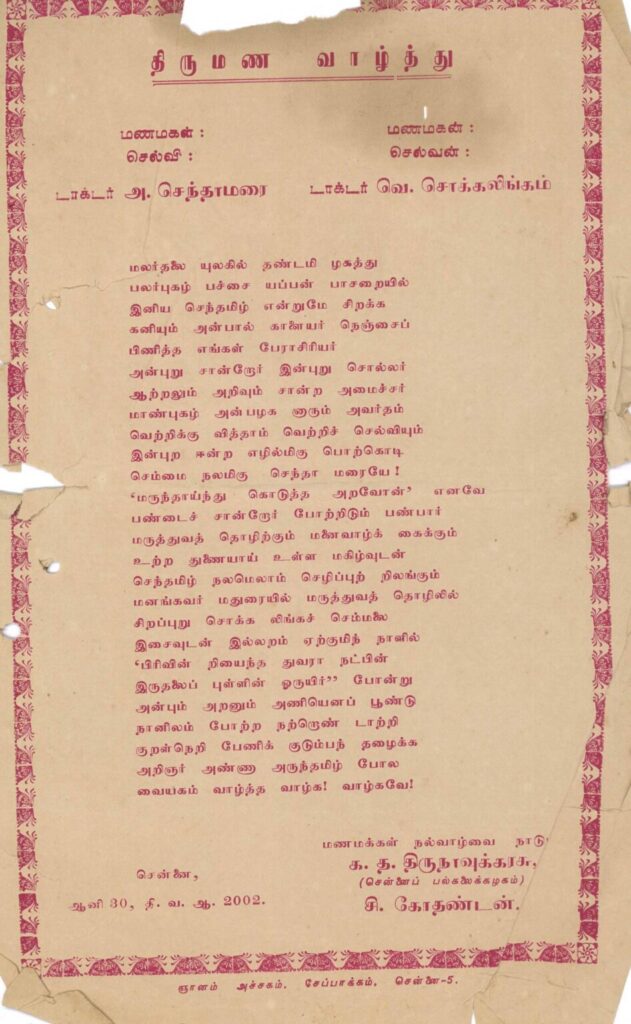 திருமண வாழ்த்து
மணமகள் :
செல்வி :
டாக்டர் அ. செந்தாமரை
மணமகன் :
செல்வன் :
டாக்டர் வெ. சொக்கலிங்கம்
மலர்தலை யுலகில் தண்டமி ழகத்து
பலர்புகழ் பச்சை யப்பன் பாசறையில்
இனிய செந்தமிழ் என்றுமே சிறக்க
கனியும் அன்பால் காளையர் நெஞ்சைப்
பிணித்த எங்கள் பேராசிரியர்
அன்புறு சான்றோர் இன்புறு சொல்லர்
ஆற்றலும் அறிவும் சான்ற அமைச்சர்
மாண்புகழ் அன்பழக னாரும் அவர்தம்
வெற்றிக்கு வித்தாம் வெற்றிச் செல்வியும்
இன்புற ஈன்ற எழில்மிகு பொற்கொடி
செம்மை நலமிகு செந்தா மரையே !
‘மருந்தாய்ந்து கொடுத்த அறவோன்’ எனவே
பண்டைச் சான்றோர் போற்றிடும் பண்பார்
மருத்துவத் தொழிற்கும் மனைவாழ்க் கைக்கும்
உற்ற துணையாய் உள்ள மகிழ்வுடன்
செந்தமிழ் நலமெலாம் செழிப்புற் றிலங்கும்
மனங்கவர் மதுரையில் மருத்துவத் தொழிலில்
சிறப்புறு சொக்க லிங்கச் செம்மலை
இசைவுடன் இல்லறம் ஏற்குமிந் நாளில்
‘பிரிவின் றியைந்த துவரா நட்பின்
இருதலைப் புள்ளின் ஓருயிர்’’ போன்று
அன்பும் அறனும் அணியெனப் பூண்டு
நானிலம் போற்ற நற்றொண் டாற்றி
குறள்நெறி பேணிக் குடும்பந் தழைக்க
அறிஞர் அண்ணா அருந்தமிழ் போல
வையகம் வாழ்த்த வாழ்க! வாழ்கவே!
மணமக்கள் நல்வாழ்வை நாடு
க. த. திருநாவுக்கரசு,
(சென்னைப் பல்கலைக்கழகம்)
சி. கோதண்டன்.
சென்னை,
ஆனி 30, தி. வ. ஆ. 2002.
ஞானம் அச்சகம், சேப்பாக்கம், சென்னை-5.